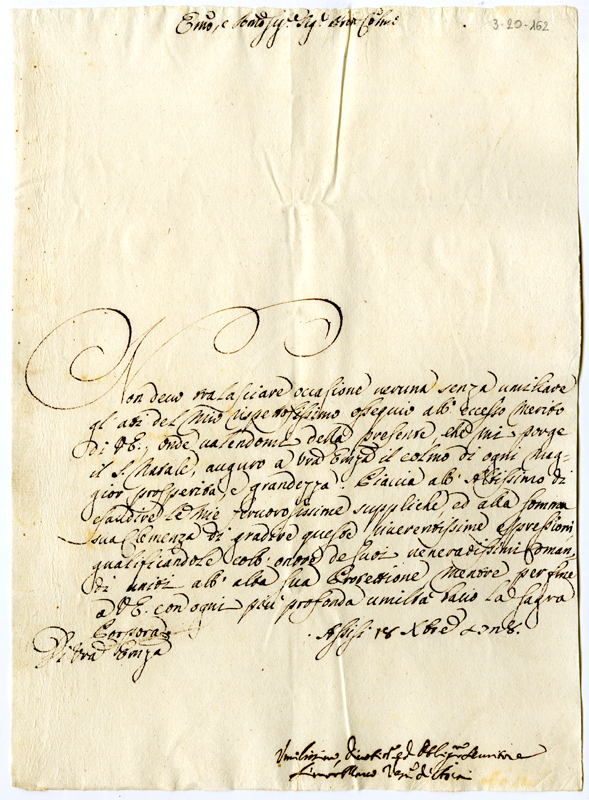 3-20-162
Non devo tralasciare occasione veruna senza umiliare
gl' atti del mio rispettosissimo ossequio all' eccelso merito
di V.E., onde valendomi della presente, che mi porge
il S. Natale, auguro a Vra Emza il colmo di ogni mag-
gior prosperità, e grandezza. Piaccia all' Altissimo di
esaudire le mie suppliche, ed alla somma
sua Clemenza di gradire queste riverentissime espressioni,
qualificandole coll' onore de suoi veneratissimi Coman
di uniti all' alta sua Protettione mentre per fine
a V.E. con ogni più profonda umiltà bacio la sagra
Porpora
Di Vra Emza
Assisi 18 Xbre